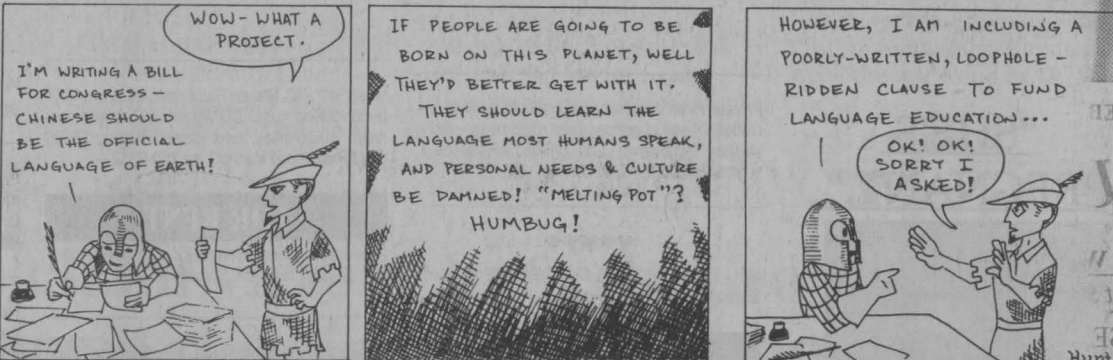 I'M WRITING A BILL
FOR CONGRESS –
CHINESE SHOULD
BE THE OFFICIAL
LANGUAGE OF EARTH!
WOW – WHAT A
PROJECT.
IF PEOPLE ARE GOING TO BE
BORN ON THIS PLANET, WELL
THEY'D BETTER GET WITH IT.
THEY SHOULD LEARN THE
LANGUAGE MOST HUMANS SPEAK,
AND PERSONAL NEEDS & CULTURE
BE DAMNED! "MELTING POT"?
HUMBUG!
HOWEVER, I AM INCLUDING A
POORLY-WRITTEN, LOOPHOLE –
RIDDEN CLAUSE TO FUND
LANGUAGE EDUCATION...
OK! OK!
SORRY I
ASKED!